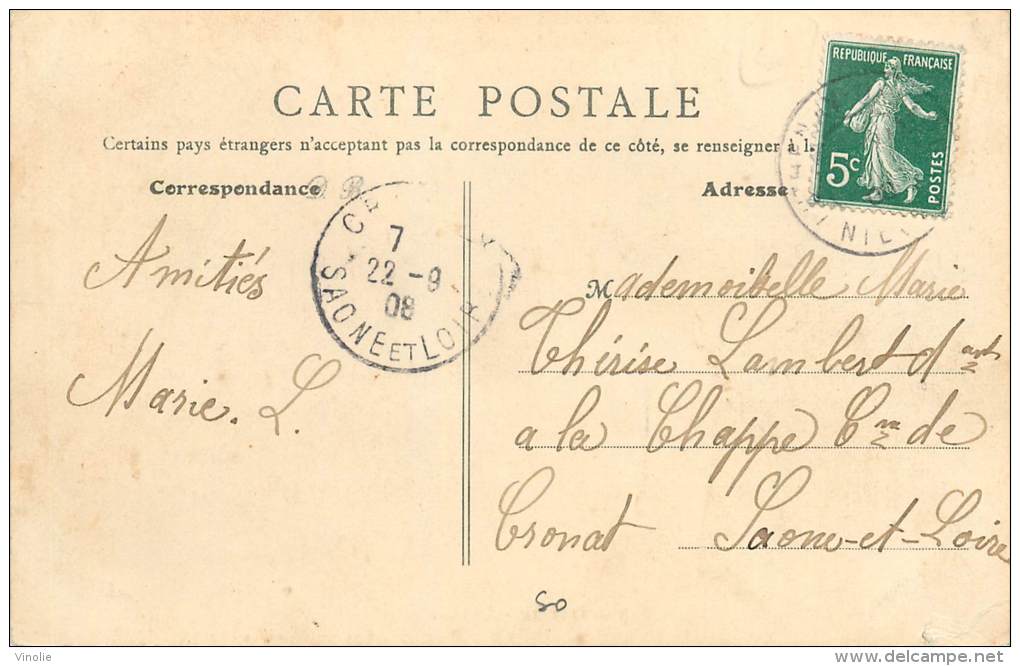 REPUBLIQUE FRANÇAISE
5c
POSTES
CARTE POSTALE
Certains pays étrangers n'acceptant pas la correspondance de ce côté, se renseigner à l
Correspondance
Adresse
7
22 - 9
08
SAONE ET LOIR
Amitiés
Marie. L.
Mademoiselle Marie
Thérise Lambert dant
a la Chappe Cne de
Cronat Saone-et-Loire
50
Vinolie
delcampe.net